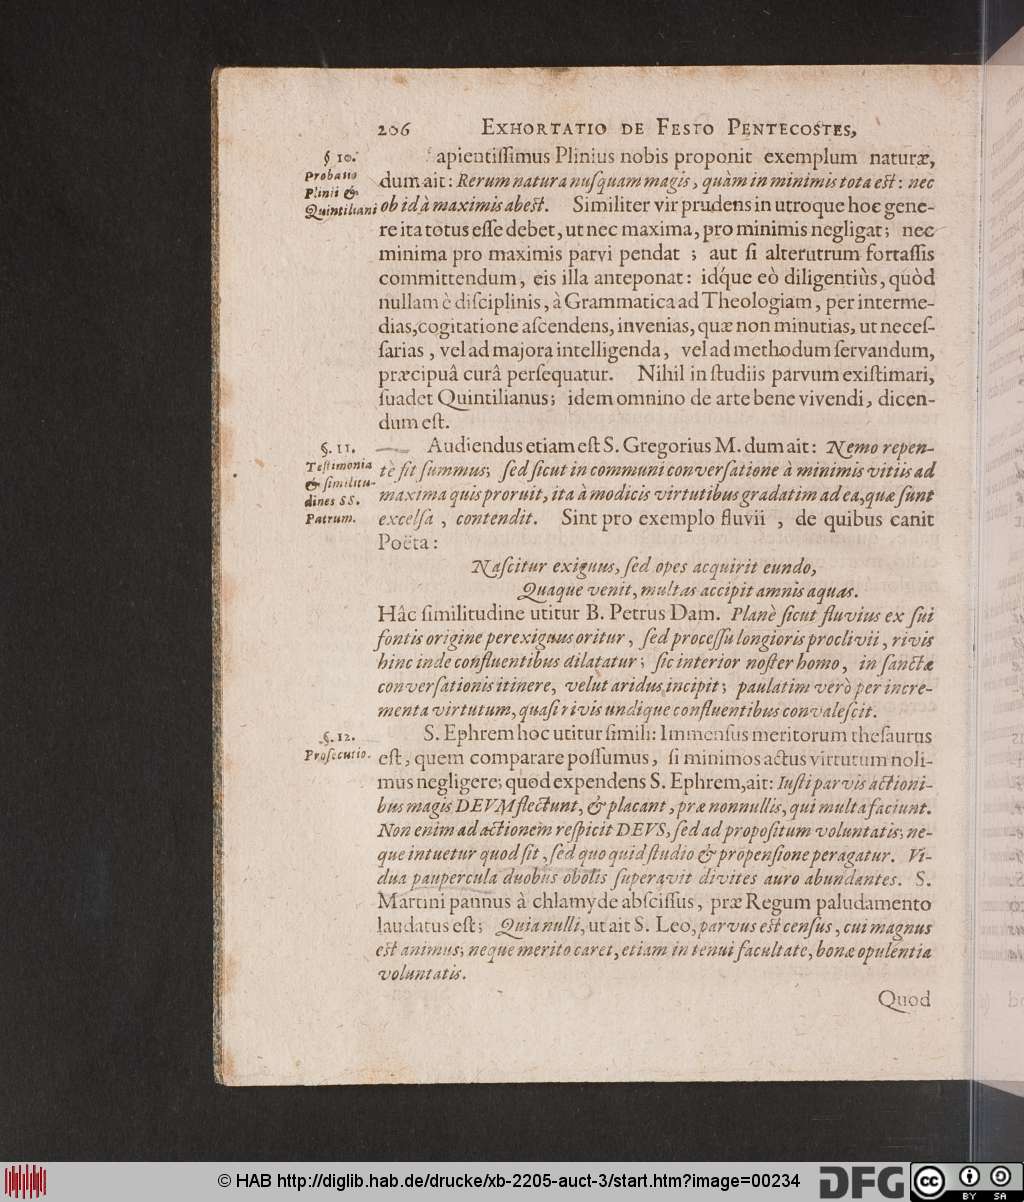 206 EXHORTATIO DE FESTO PENTECOSTES,
§ 10.
Probatio
Plinii &
Quintiliani
apientiſſimus Plinius nobis proponit exemplum naturæ,
dum ait: Rerum natura nuſquam magis, quàm in minimis tota eſt: nec
ob id à maximis abeſt. Similiter vir prudens in utroque hoc gene-
re ita totus eſſe debet, ut nec maxima, pro minimis negligat; nec
minima pro maximis parvi pendat ; aut ſi alterutrum fortaſſis
committendum, eis illa anteponat: idq́ue eò diligentiùs, quòd
nullam è diſciplinis, à Grammatica ad Theologiam, per interme-
dias, cogitatione aſcendens, invenias, quæ non minutias, ut neceſ-
ſarias, vel ad majora intelligenda, vel ad methodum ſervandum,
præcipuâ curâ perſequatur. Nihil in ſtudiis parvum exiſtimari,
ſuadet Quintilianus; idem omnino de arte bene vivendi, dicen-
dum eſt.
§. 11.
Teſtimonia
& ſimilitu-
dines SS.
Patrum.
Audiendus etiam eſt S. Gregorius M. dum ait: Nemo repen-
tè fit ſummus; ſed ſicut in communi converſatione à minimis vitiis ad
maxima quis proruit, ita à modicis virtutibus gradatim ad ea, quæ ſunt
excelſa, contendit. Sint pro exemplo fluvii, de quibus canit
Poëta:
Naſcitur exiguus, ſed opes acquirit eundo,
Quaque venit, multas accipit amnis aquas.
Hâc ſimilitudine utitur B. Petrus Dam. Planè ſicut fluvius ex ſui
fontis origine perexiguus oritur, ſed proceſſu longioris proclivii, rivis
hinc inde confluentibus dilatatur; ſic interior noſter homo, in ſanctæ
converſationis itinere, velut aridus incipit; paulatim verò per incre-
menta virtutum, quaſi rivis undique confluentibus convaleſcit.
§. 12.
Proſecutio.
S. Ephrem hoc utitur ſimili: Immenſus meritorum theſaurus
eſt, quem comparare poſſumus, ſi minimos actus virtutum noli-
mus negligere; quod expendens S. Ephrem, ait: Iuſti parvis actioni-
bus magis DEVM flectunt, & placant, præ nonnullis, qui multa faciunt.
Non enim ad actionem reſpicit DEVS, ſed ad propoſitum voluntatis; ne-
que intuetur quod fit, ſed quo quid ſtudio & propenſione peragatur. Vi-
dua paupercula duobus obolis ſuperavit divites auro abundantes. S.
Martini pannus à chlamyde abſciſſus, præ Regum paludamento
laudatus eſt; Quia nulli, ut ait S. Leo, parvus eſt cenſus, cui magnus
eſt animus; neque merito caret, etiam in tenui facultate, bonæ opulentia
voluntatis.
Quod
© HAB http://diglib.hab.de/drucke/xb-2205-auct-3/start.htm?image=00234
DFG
cc
BY SA